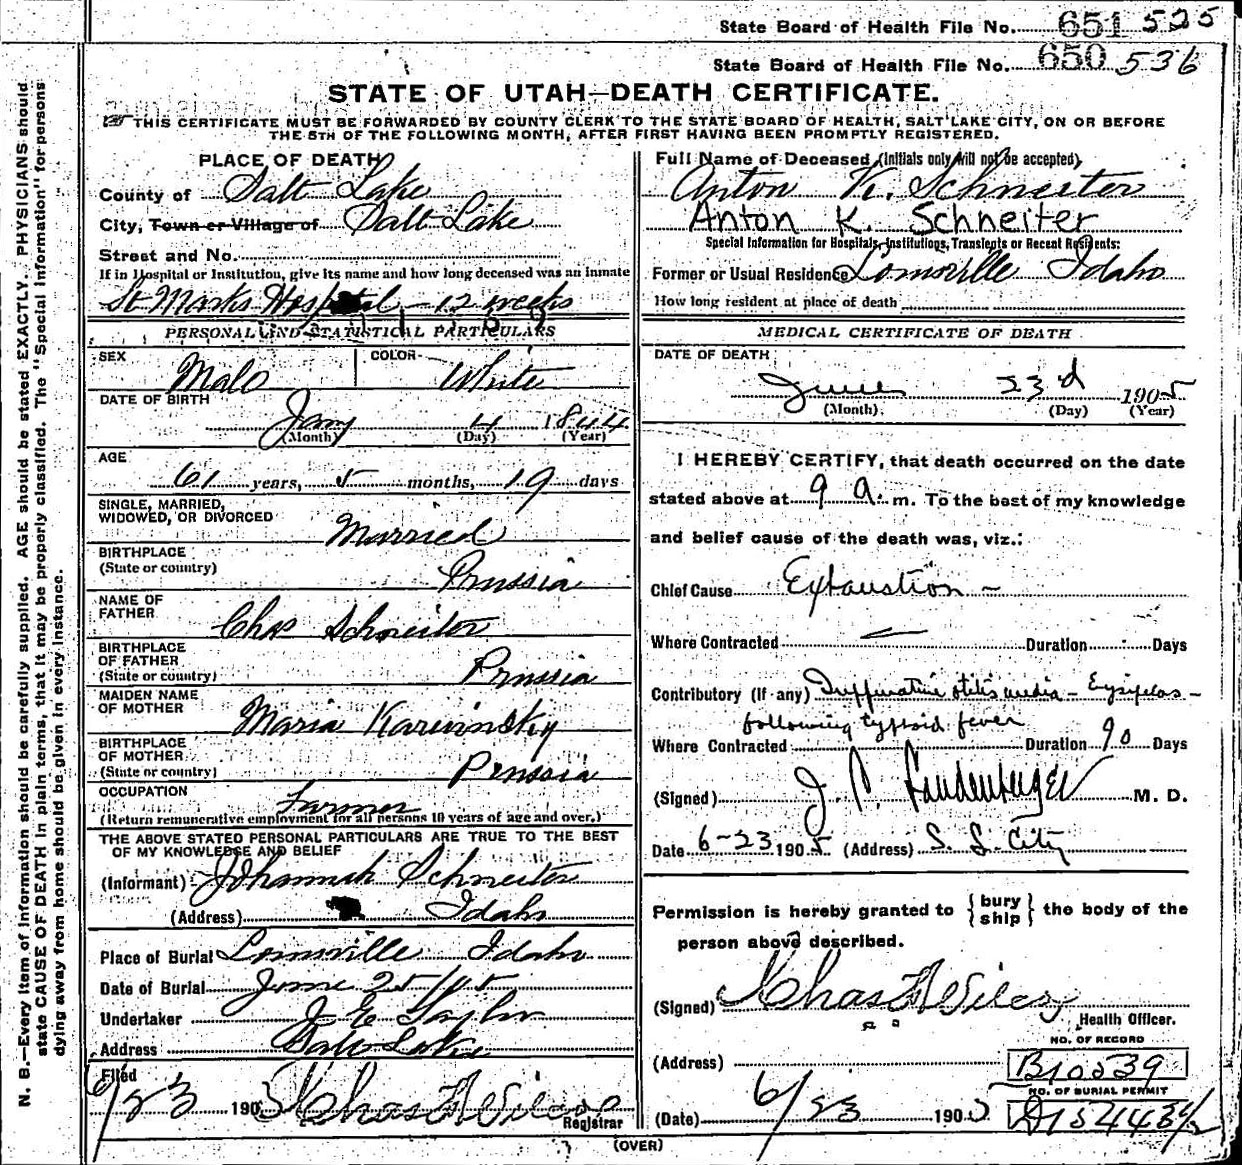 State Board of Health File No. 651 525
State Board of Health File No. 650 536
STATE OF UTAH—DEATH CERTIFICATE.
THIS CERTIFICATE MUST BE FORWARDED BY COUNTY CLERK TO THE STATE BOARD OF HEALTH, SALT LAKE CITY, ON OR BEFORE
THE 5TH OF THE FOLLOWING MONTH, AFTER FIRST HAVING BEEN PROMPTLY REGISTERED.
PLACE OF DEATH
County of Salt Lake
City, Town or Village of Salt Lake
Street and No.
If in Hospital or Institution, give its name and how long deceased was an inmate
St Marks Hospital – 12 weeks
PERSONAL AND STATISTICAL PARTICULARS
SEX Male COLOR White
DATE OF BIRTH
Jany 4 1844
(Month) (Day) (Year)
AGE
61 years, 5 months, 19 days
SINGLE, MARRIED,
WIDOWED, OR DIVORCED Married
BIRTHPLACE
(State or country) Prussia
NAME OF
FATHER Chas Schneiter
BIRTHPLACE
OF FATHER
(State or country) Prussia
MAIDEN NAME
OF MOTHER Maria Karwinsky
BIRTHPLACE
OF MOTHER
(State or country) Prussia
OCCUPATION Farmer
(Return remunerative employment for all persons 10 years of age and over.)
THE ABOVE STATED PERSONAL PARTICULARS ARE TRUE TO THE BEST
OF MY KNOWLEDGE AND BELIEF
(Informant) Johannah Schneiter
(Address) Idaho
Place of Burial Lomsville Idaho
Date of Burial June 25/05
Undertaker J E Taylor
Address Salt Lake
Filed
6/23 1905 Chas F Wilcox
Registrar
Full Name of Deceased (Initials only will not be accepted)
Anton K. Schneiter
Anton K. Schneiter
Special Information for Hospitals, Institutions, Transients or Recent Residents:
Former or Usual Residence Lomsville Idaho
How long resident at place of death
MEDICAL CERTIFICATE OF DEATH
DATE OF DEATH
June 23d 1905
(Month) (Day) (Year)
I HEREBY CERTIFY, that death occurred on the date
stated above at 9 a. m. To the best of my knowledge
and belief cause of the death was, viz.:
Chief Cause Exhaustion –
Where Contracted Duration Days
Contributory (If any) Suppurative otitis media – Erysipelas –
following typhoid fever
Where Contracted Duration 90 Days
(Signed) J. P. M. D.
Date 6–23 1905 (Address) S. L. City
Permission is hereby granted to { bury
ship } the body of the
person above described.
(Signed) Chas F Wilcox
Health Officer.
NO. OF RECORD
(Address) B10539
NO. OF BURIAL PERMIT
(Date) 6/23 1905
(OVER)
N. B.—Every item of information should be carefully supplied. AGE should be stated EXACTLY. PHYSICIANS should
state CAUSE OF DEATH in plain terms, that it may be properly classified. The "Special Information" for persons
dying away from home should be given in every instance.